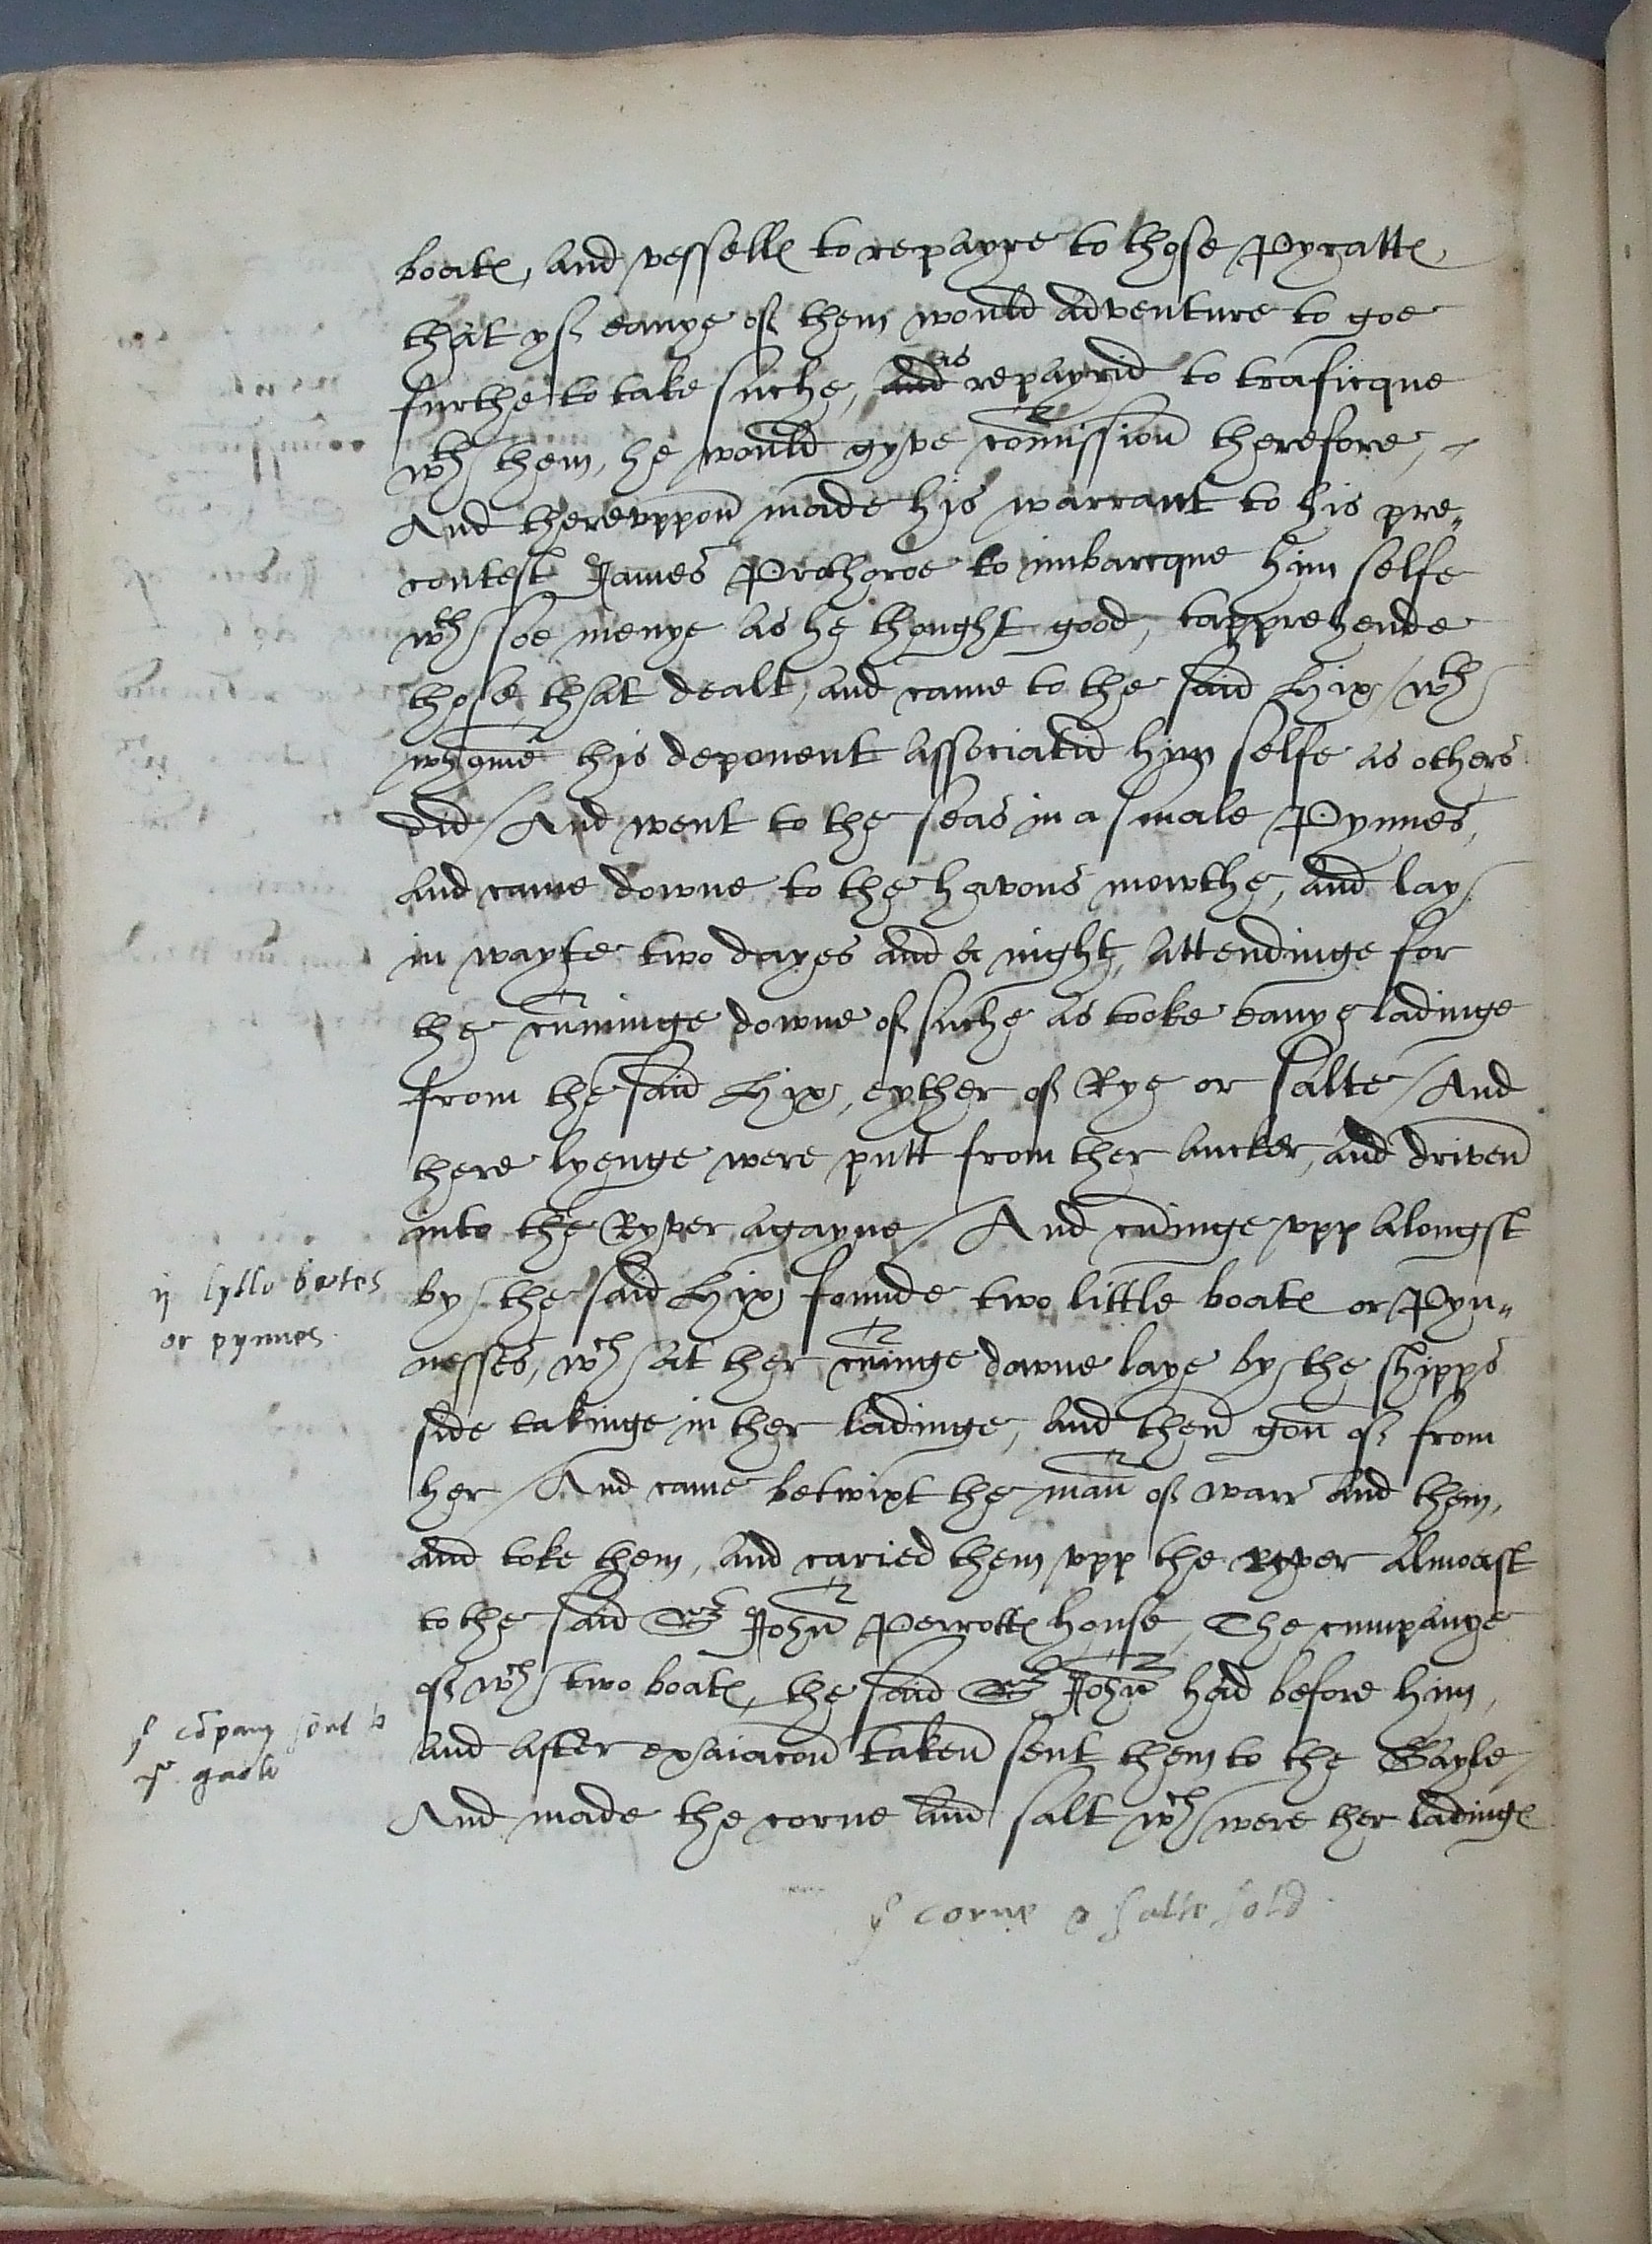 boates, and vesselles to repayre to those Pyrattes
that yf eanye of them would adventure to goe
furthe to take suche, and as repayrid to traficque
wth them, he would gyve comission therefore,
And therevppon made his warrant to his pre„
contest James Prothroe to imbarcque him selfe
wth soe menye as he thought good, tapprehende
those that dealt, and came to the said Hix / wth
whome this deponent associatid him selfe as others
did / And went to the seas in a smale Pynnes,
and came downe to the havons mowthe, and lay
in wayte two dayes and a night, attendinge for
the cuminge downe of suche as tooke eanye ladinge
from the said Hix, eyther of Rye or salte / And
there lyenge were putt from ther ancker, and driven
into the Ryver agayne / And cuminge vpp alongst
ij lytle botes
or pynnes.
by the said Hix founde two little boates or Pyn„
nesses, wch at ther cuminge downe laye by the shipps
side takinge in ther ladinge, and then gon of from
her / And came betwixt the man of warr and them,
and toke them, and caried them vpp the ryver almoast
to the said Sr John Perrottes house, The cumpanye
of wch two boates, the said Sr John had before him,
ye copany sent to
ye gaole
and after exaiacon taken sent them to the Gayle /
And made the corne and salt wch were ther ladinge
ye corne & salte sold